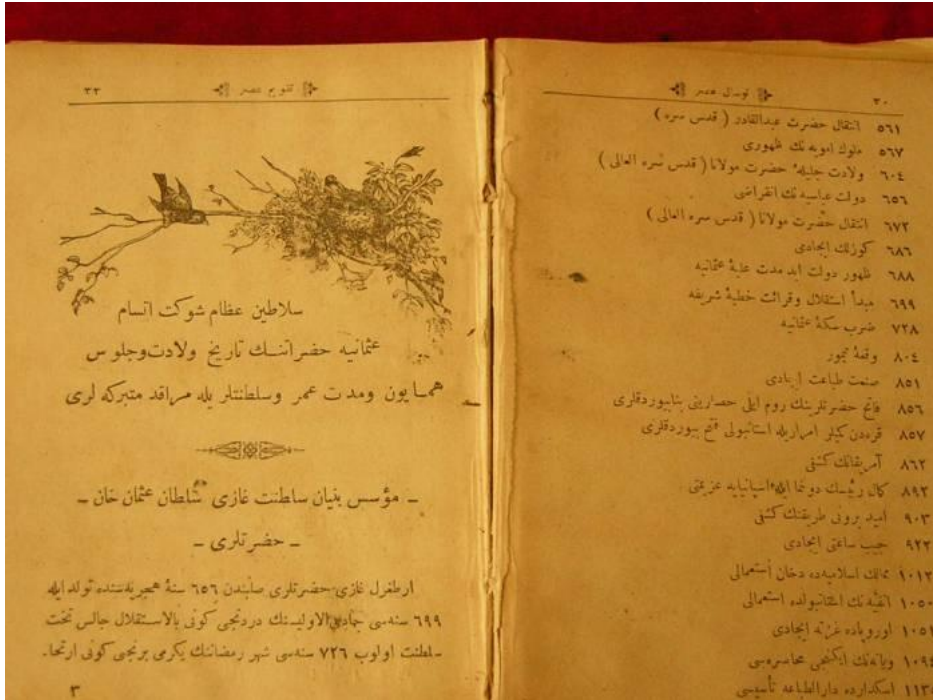 نوسال عصر
٣٠
٥٦١ انتقال حضرت عبدالقادر ( قدس سره )
٥٦٧ ملوك ايوبيه نك ظهورى
٦٠٤ ولادت جليلهٔ حضرت مولانا ( قدس سره العالى )
٦٥٦ دولت عباسيه نك انقراضى
٦٧٢ انتقال حضرت مولانا ( قدس سره العالى )
٦٨٦ كوزلك ايجادى
٦٨٨ ظهور دولت ابد مدت عليهٔ عثمانيه
٦٩٩ مبدأ استقلال وقرائت خطبهٔ شريفه
٧٢٨ ضرب سكهٔ عثمانيه
٨٠٤ وقعهٔ تيمور
٨٥١ صنعت طباعت ايجادى
٨٥٦ فاتح حضرتلرينك روم ايلى حصارينى بنا بيوردقلرى
٨٥٧ قره دن كميلر امراريله استانبولى فتح بيوردقلرى
٨٦٢ آمريقانك كشفى
٨٩٣ كمال رئيسك دونما ايله اسپانيايه عزيمتى
٩٠٣ اميد برونى طريقنك كشفى
٩٢٢ جيب ساعتى ايجادى
١٠١٢ ممالك اسلاميه ده دخان استعمالى
١٠٥٠ انفيه نك استانبولده استعمالى
١٠٥١ اوروپاده غزته ايجادى
١٠٩٤ ويانه نك ايكنجى محاصره سى
اسكدارده دار الطباعه تأسيسى
تقويم عصر
٣٣
سلاطين عظام شوكت اتسام
عثمانيه حضراتنك تاريخ ولادت وجلوس
همايون ومدت عمر وسلطنتلريله مراقد متبركه لرى
ـ مؤسس بنيان سلطنت غازى سلطان عثمان خان ـ
ـ حضرتلرى ـ
ارطغرل غازى حضرتلرى صلبندن ٦٥٦ سنهٔ هجريه سنده تولد ايله
٦٩٩ سنه سى جمادى الاوليسنك دردنجى كونى بالاستقلال جالس تخت
سلطنت اولوب ٧٢٦ سنه سى شهر رمضاننك يكرمى برنجى كونى ارتحا-
٣